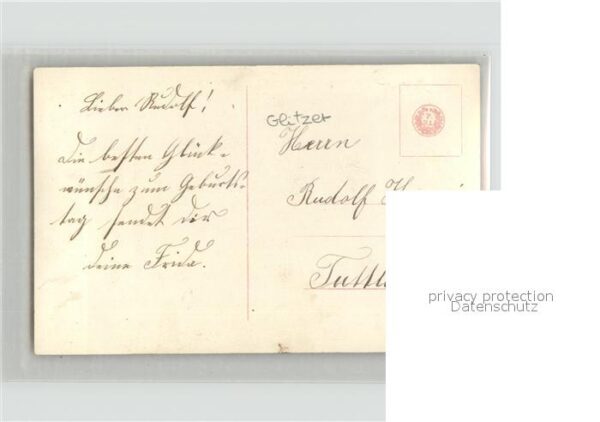 Lieber Rudolf!
Die besten Glück-
wünsche zum Geburts-
tag sendet dir
deine Frida.
Glitzer
Herrn
Rudolf
privacy protection
Datenschutz